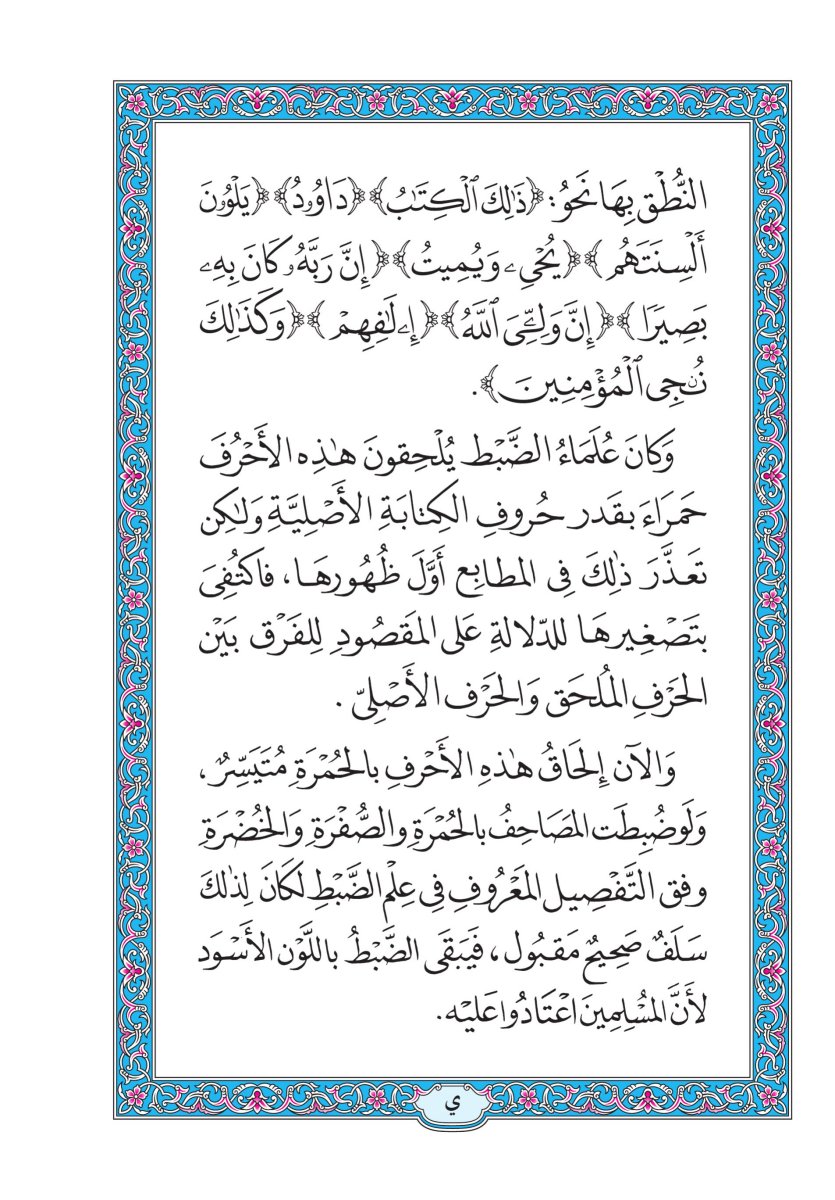 النُّطْقِ بِهَا نَحْوُ: ﴿ذَٰلِكَ ٱلْكِتَٰبُ﴾ ﴿دَاوُۥدُ﴾ ﴿يَلْوُۥنَ
أَلْسِنَتَهُم﴾ ﴿يُحْيِۦ وَيُمِيتُ﴾ ﴿إِنَّ رَبَّهُۥ كَانَ بِهِۦ
بَصِيرًا﴾ ﴿إِنَّ وَلِـِّۧيَ ٱللَّهُ﴾ ﴿إِۦلَٰفِهِمْ﴾ ﴿وَكَذَٰلِكَ
نُـۨجِي ٱلْمُؤْمِنِينَ﴾.
وَكَانَ عُلَمَاءُ الضَّبْطِ يُلْحِقُونَ هَٰذِهِ الأَحْرُفَ
حَمْرَاءَ بِقَدْرِ حُرُوفِ الكِتَابَةِ الأَصْلِيَّةِ وَلَٰكِن
تَعَذَّرَ ذَٰلِكَ فِي المَطَابِعِ أَوَّلَ ظُهُورِهَا، فَاكْتُفِيَ
بِتَصْغِيرِهَا لِلدّلالَةِ عَلَى المَقْصُودِ لِلفَرْقِ بَيْنَ
الحَرْفِ المُلْحَقِ وَالحَرْفِ الأَصْلِيّ.
وَالآنَ إِلْحَاقُ هَٰذِهِ الأَحْرُفِ بِالحُمْرَةِ مُتَيَسِّرٌ،
وَلَوْ ضُبِطَتِ المَصَاحِفُ بِالحُمْرَةِ وَالصُّفْرَةِ وَالخُضْرَةِ
وفق التَّفْصِيلِ المَعْرُوفِ فِي عِلْمِ الضَّبْطِ لَكَانَ لِذَٰلِكَ
سَلَفٌ صَحِيحٌ مَقْبُول، فَيَبْقَى الضَّبْطُ بِاللَّوْنِ الأَسْوَدِ
لأَنَّ المُسْلِمِينَ اعْتَادُوا عَلَيْهِ.
ي